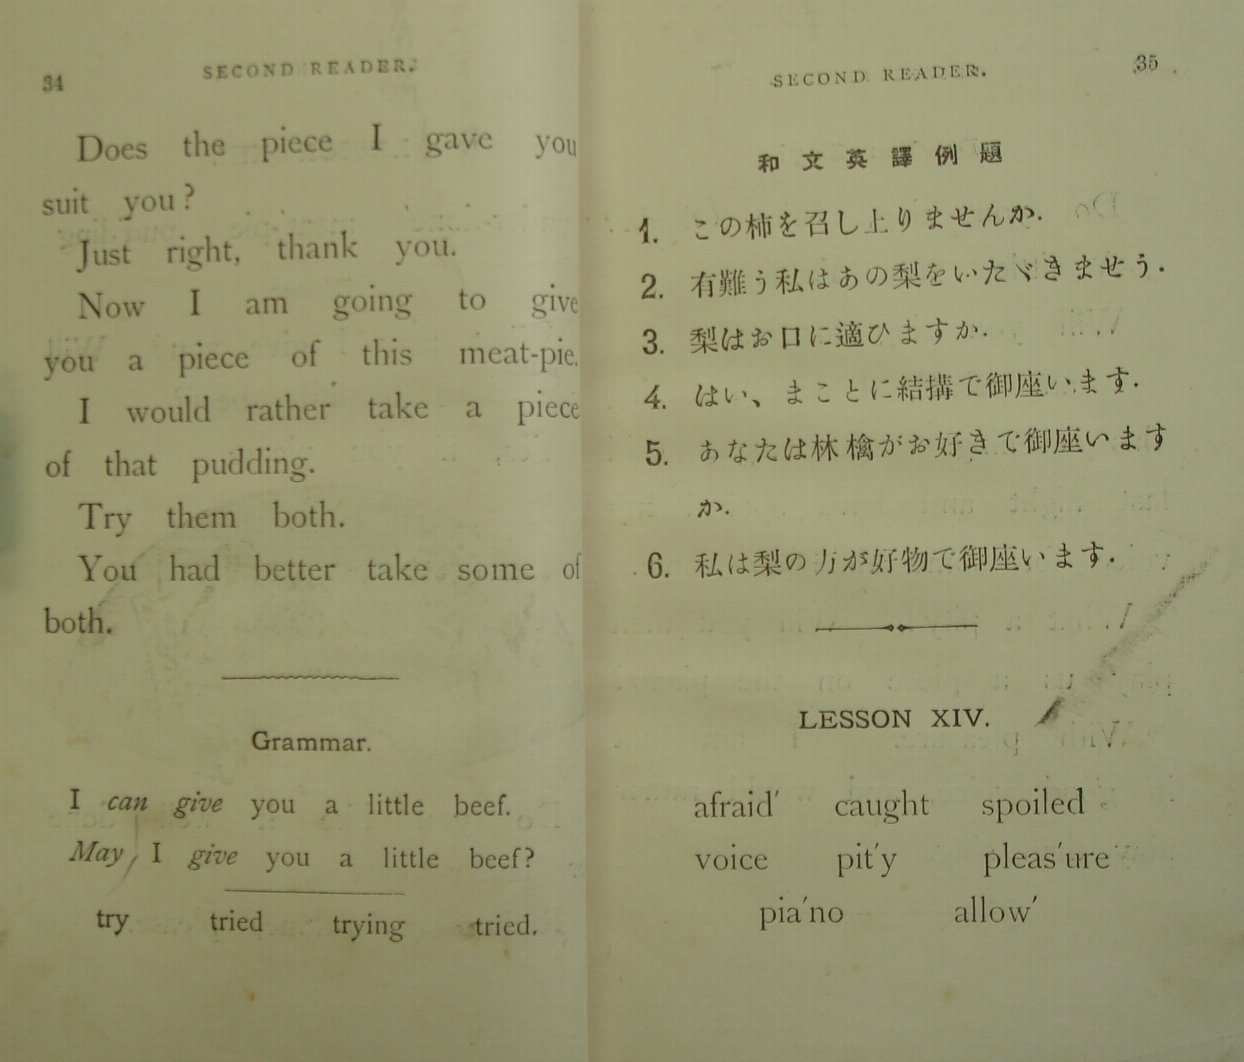 34 SECOND READER.
Does the piece I gave you
suit you?
Just right, thank you.
Now I am going to give
you a piece of this meat-pie.
I would rather take a piece
of that pudding.
Try them both.
You had better take some of
both.
Grammar.
I can give you a little beef.
May I give you a little beef?
try tried trying tried.
SECOND READER. 35
和文英譯例題
1. この柿を召し上りませんか.
2. 有難う私はあの梨をいたゞきませう.
3. 梨はお口に適ひますか.
4. はい、まことに結搆で御座います.
5. あなたは林檎がお好きで御座います
か.
6. 私は梨の方が好物で御座います.
LESSON XIV.
afraid′ caught spoiled
voice pit′y pleas′ure
pia′no allow′